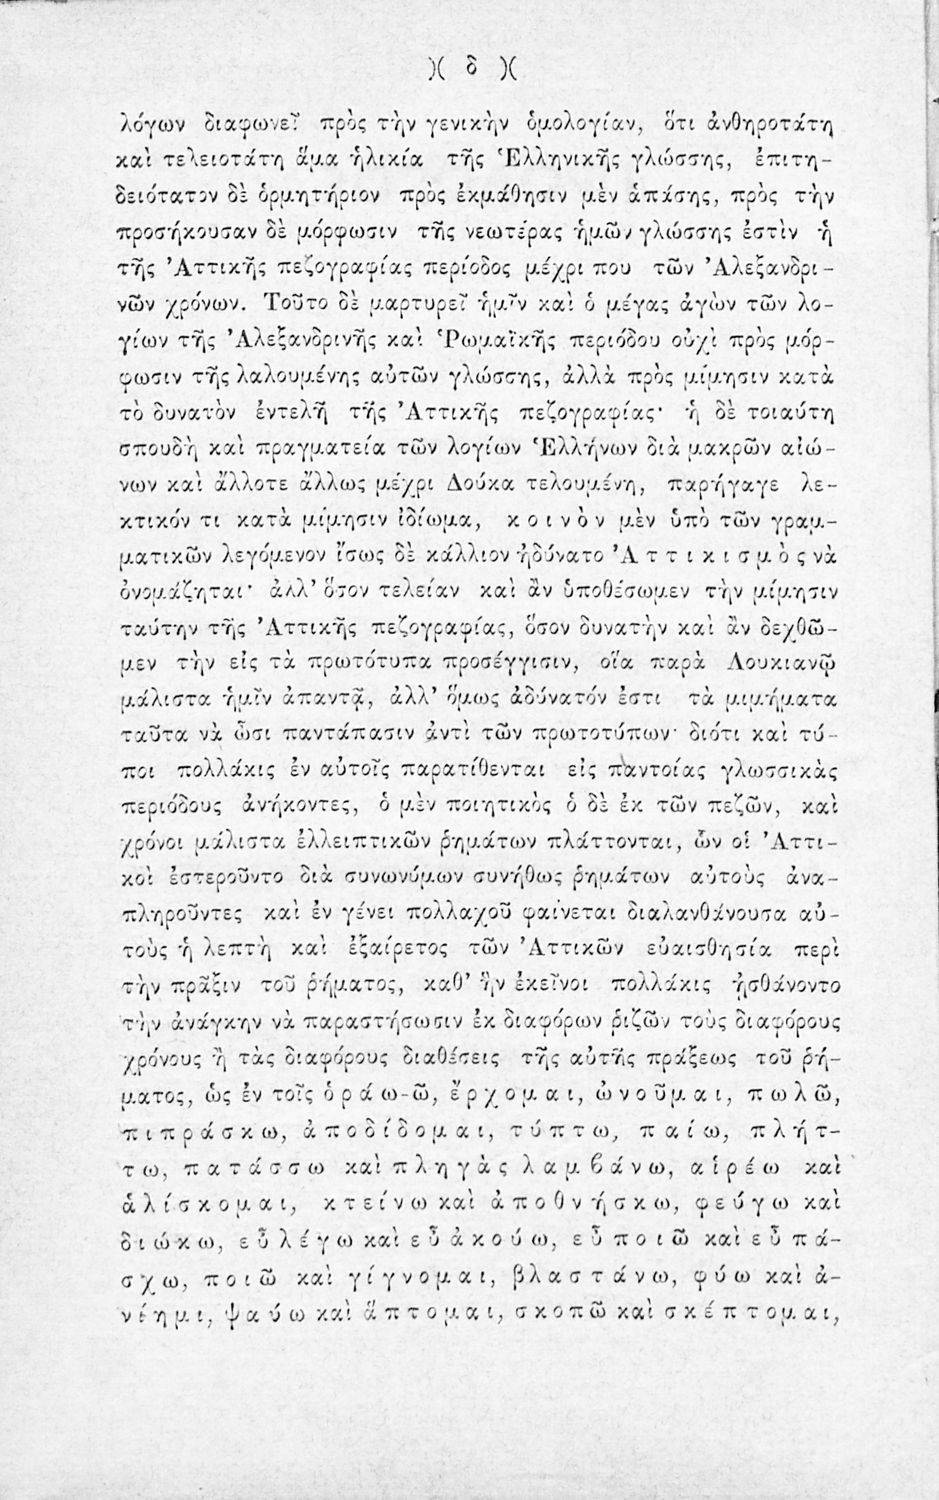 )( δ )(
λόγων διαφωνεῖ πρὸς τὴν γενικὴν ὁμολογίαν, ὅτι ἀνθηροτάτη
καὶ τελειοτάτη ἅμα ἡλικία τῆς Ἑλληνικῆς γλώσσης, ἐπιτη-
δειότατον δὲ ὁρμητήριον πρὸς ἐκμάθησιν μὲν ἁπάσης, πρὸς τὴν
προσήκουσαν δὲ μόρφωσιν τῆς νεωτέρας ἡμῶν γλώσσης ἐστὶν ἡ
τῆς Ἀττικῆς πεζογραφίας περίοδος μέχρι που τῶν Ἀλεξανδρι-
νῶν χρόνων. Τοῦτο δὲ μαρτυρεῖ ἡμῖν καὶ ὁ μέγας ἀγὼν τῶν λο-
γίων τῆς Ἀλεξανδρινῆς καὶ Ῥωμαϊκῆς περιόδου οὐχὶ πρὸς μόρ-
φωσιν τῆς λαλουμένης αὐτῶν γλώσσης, ἀλλὰ πρὸς μίμησιν κατὰ
τὸ δυνατὸν ἐντελῆ τῆς Ἀττικῆς πεζογραφίας· ἡ δὲ τοιαύτη
σπουδὴ καὶ πραγματεία τῶν λογίων Ἑλλήνων διὰ μακρῶν αἰώ-
νων καὶ ἄλλοτε ἄλλως μέχρι Δούκα τελουμένη, παρήγαγε λε-
κτικόν τι κατὰ μίμησιν ἰδίωμα, κοινὸν μὲν ὑπὸ τῶν γραμ-
ματικῶν λεγόμενον ἴσως δὲ κάλλιον ἠδύνατο Ἀττικισμὸς νὰ
ὀνομάζηται· ἀλλ' ὅσον τελείαν καὶ ἂν ὑποθέσωμεν τὴν μίμησιν
ταύτην τῆς Ἀττικῆς πεζογραφίας, ὅσον δυνατὴν καὶ ἂν δεχθῶ-
μεν τὴν εἰς τὰ πρωτότυπα προσέγγισιν, οἵα παρὰ Λουκιανῷ
μάλιστα ἡμῖν ἀπαντᾷ, ἀλλ' ὅμως ἀδύνατόν ἐστι τὰ μιμήματα
ταῦτα νὰ ὦσι παντάπασιν ἀντὶ τῶν πρωτοτύπων· διότι καὶ τύ-
ποι πολλάκις ἐν αὐτοῖς παρατίθενται εἰς παντοίας γλωσσικὰς
περιόδους ἀνήκοντες, ὁ μὲν ποιητικὸς ὁ δὲ ἐκ τῶν πεζῶν, καὶ
χρόνοι μάλιστα ἐλλειπτικῶν ῥημάτων πλάττονται, ὧν οἱ Ἀττι-
κοὶ ἐστεροῦντο διὰ συνωνύμων συνήθως ῥημάτων αὐτοὺς ἀνα-
πληροῦντες καὶ ἐν γένει πολλαχοῦ φαίνεται διαλανθάνουσα αὐ-
τοὺς ἡ λεπτὴ καὶ ἐξαίρετος τῶν Ἀττικῶν εὐαισθησία περὶ
τὴν πρᾶξιν τοῦ ῥήματος, καθ' ἣν ἐκεῖνοι πολλάκις ᾐσθάνοντο
τὴν ἀνάγκην νὰ παραστήσωσιν ἐκ διαφόρων ῥιζῶν τοὺς διαφόρους
χρόνους ἢ τὰς διαφόρους διαθέσεις τῆς αὐτῆς πράξεως τοῦ ῥή-
ματος, ὡς ἐν τοῖς ὁράω-ῶ, ἔρχομαι, ὠνοῦμαι, πωλῶ,
πιπράσκω, ἀποδίδομαι, τύπτω, παίω, πλήτ-
τω, πατάσσω καὶ πληγὰς λαμβάνω, αἱρέω καὶ
ἁλίσκομαι, κτείνω καὶ ἀποθνήσκω, φεύγω καὶ
διώκω, εὖ λέγω καὶ εὖ ἀκούω, εὖ ποιῶ καὶ εὖ πά-
σχω, ποιῶ καὶ γίγνομαι, βλαστάνω, φύω καὶ ἀ-
νίημι, ψαύω καὶ ἅπτομαι, σκοπῶ καὶ σκέπτομαι,